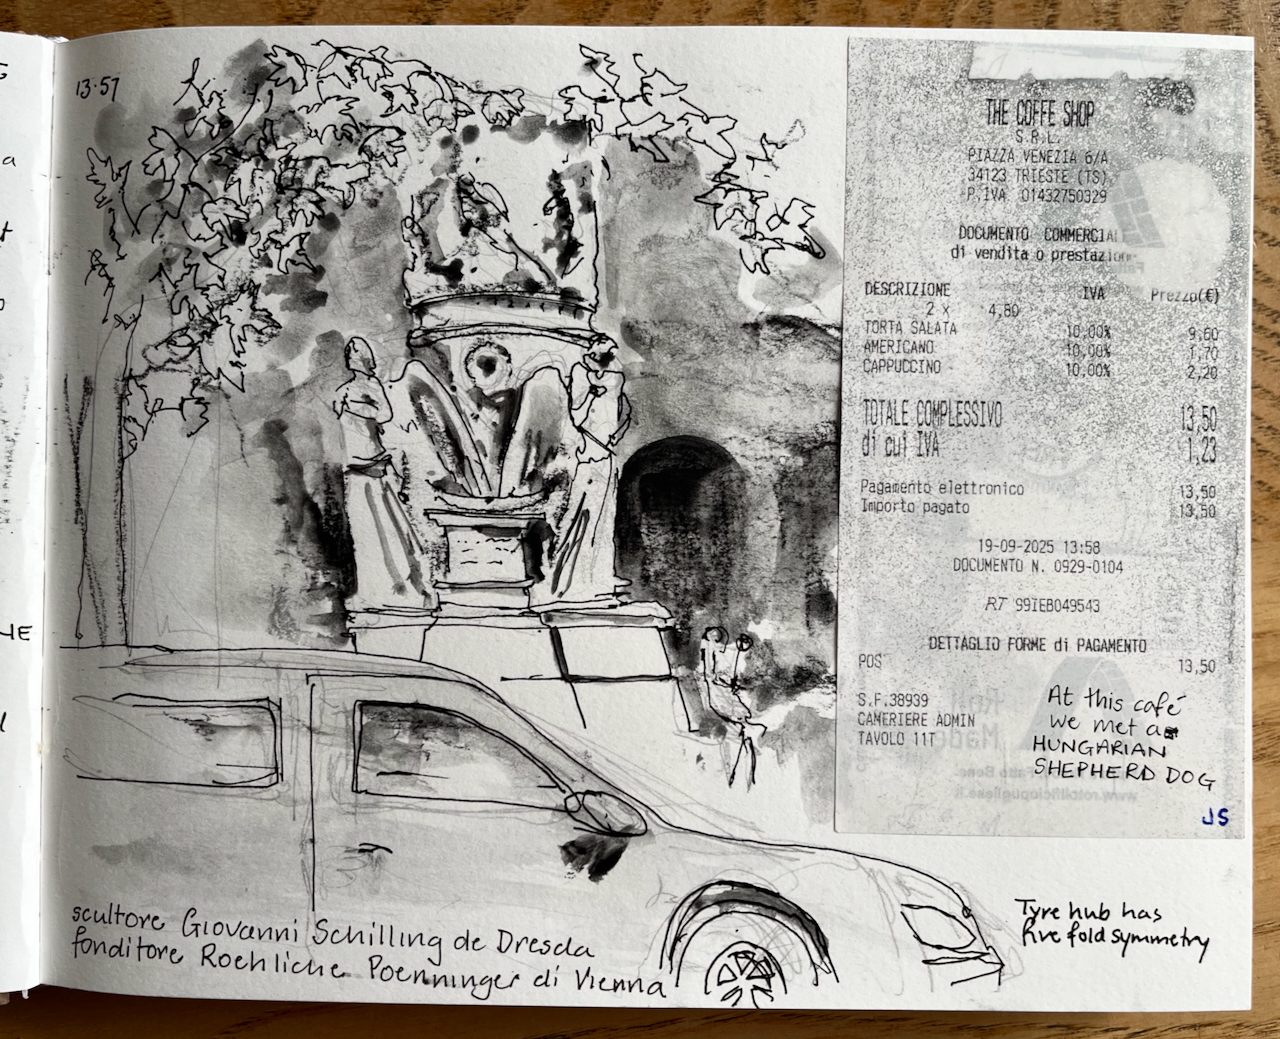 13.57
a
NE
THE COFFE SHOP
S.R.L.
PIAZZA VENEZIA 6/A
34123 TRIESTE (TS)
P.IVA 01432750329
DOCUMENTO COMMERCIAL
di vendita o prestazione
DESCRIZIONE IVA Prezzo(€)
2 x 4,80
TORTA SALATA 10,00% 9,60
AMERICANO 10,00% 1,70
CAPPUCCINO 10,00% 2,20
TOTALE COMPLESSIVO 13,50
di cui IVA 1,23
Pagamento elettronico 13,50
Importo pagato 13,50
19-09-2025 13:58
DOCUMENTO N. 0929-0104
RT S9IEB049543
DETTAGLIO FORME di PAGAMENTO
POS 13,50
S.F.38939
CAMERIERE ADMIN
TAVOLO 11T
At this café
we met a
HUNGARIAN
SHEPHERD DOG
JS
Tyre hub has
five fold symmetry
scultore Giovanni Schilling de Dresda
fonditore Roehliche Poenninger di Vienna
www.rotolificiopugliese.it